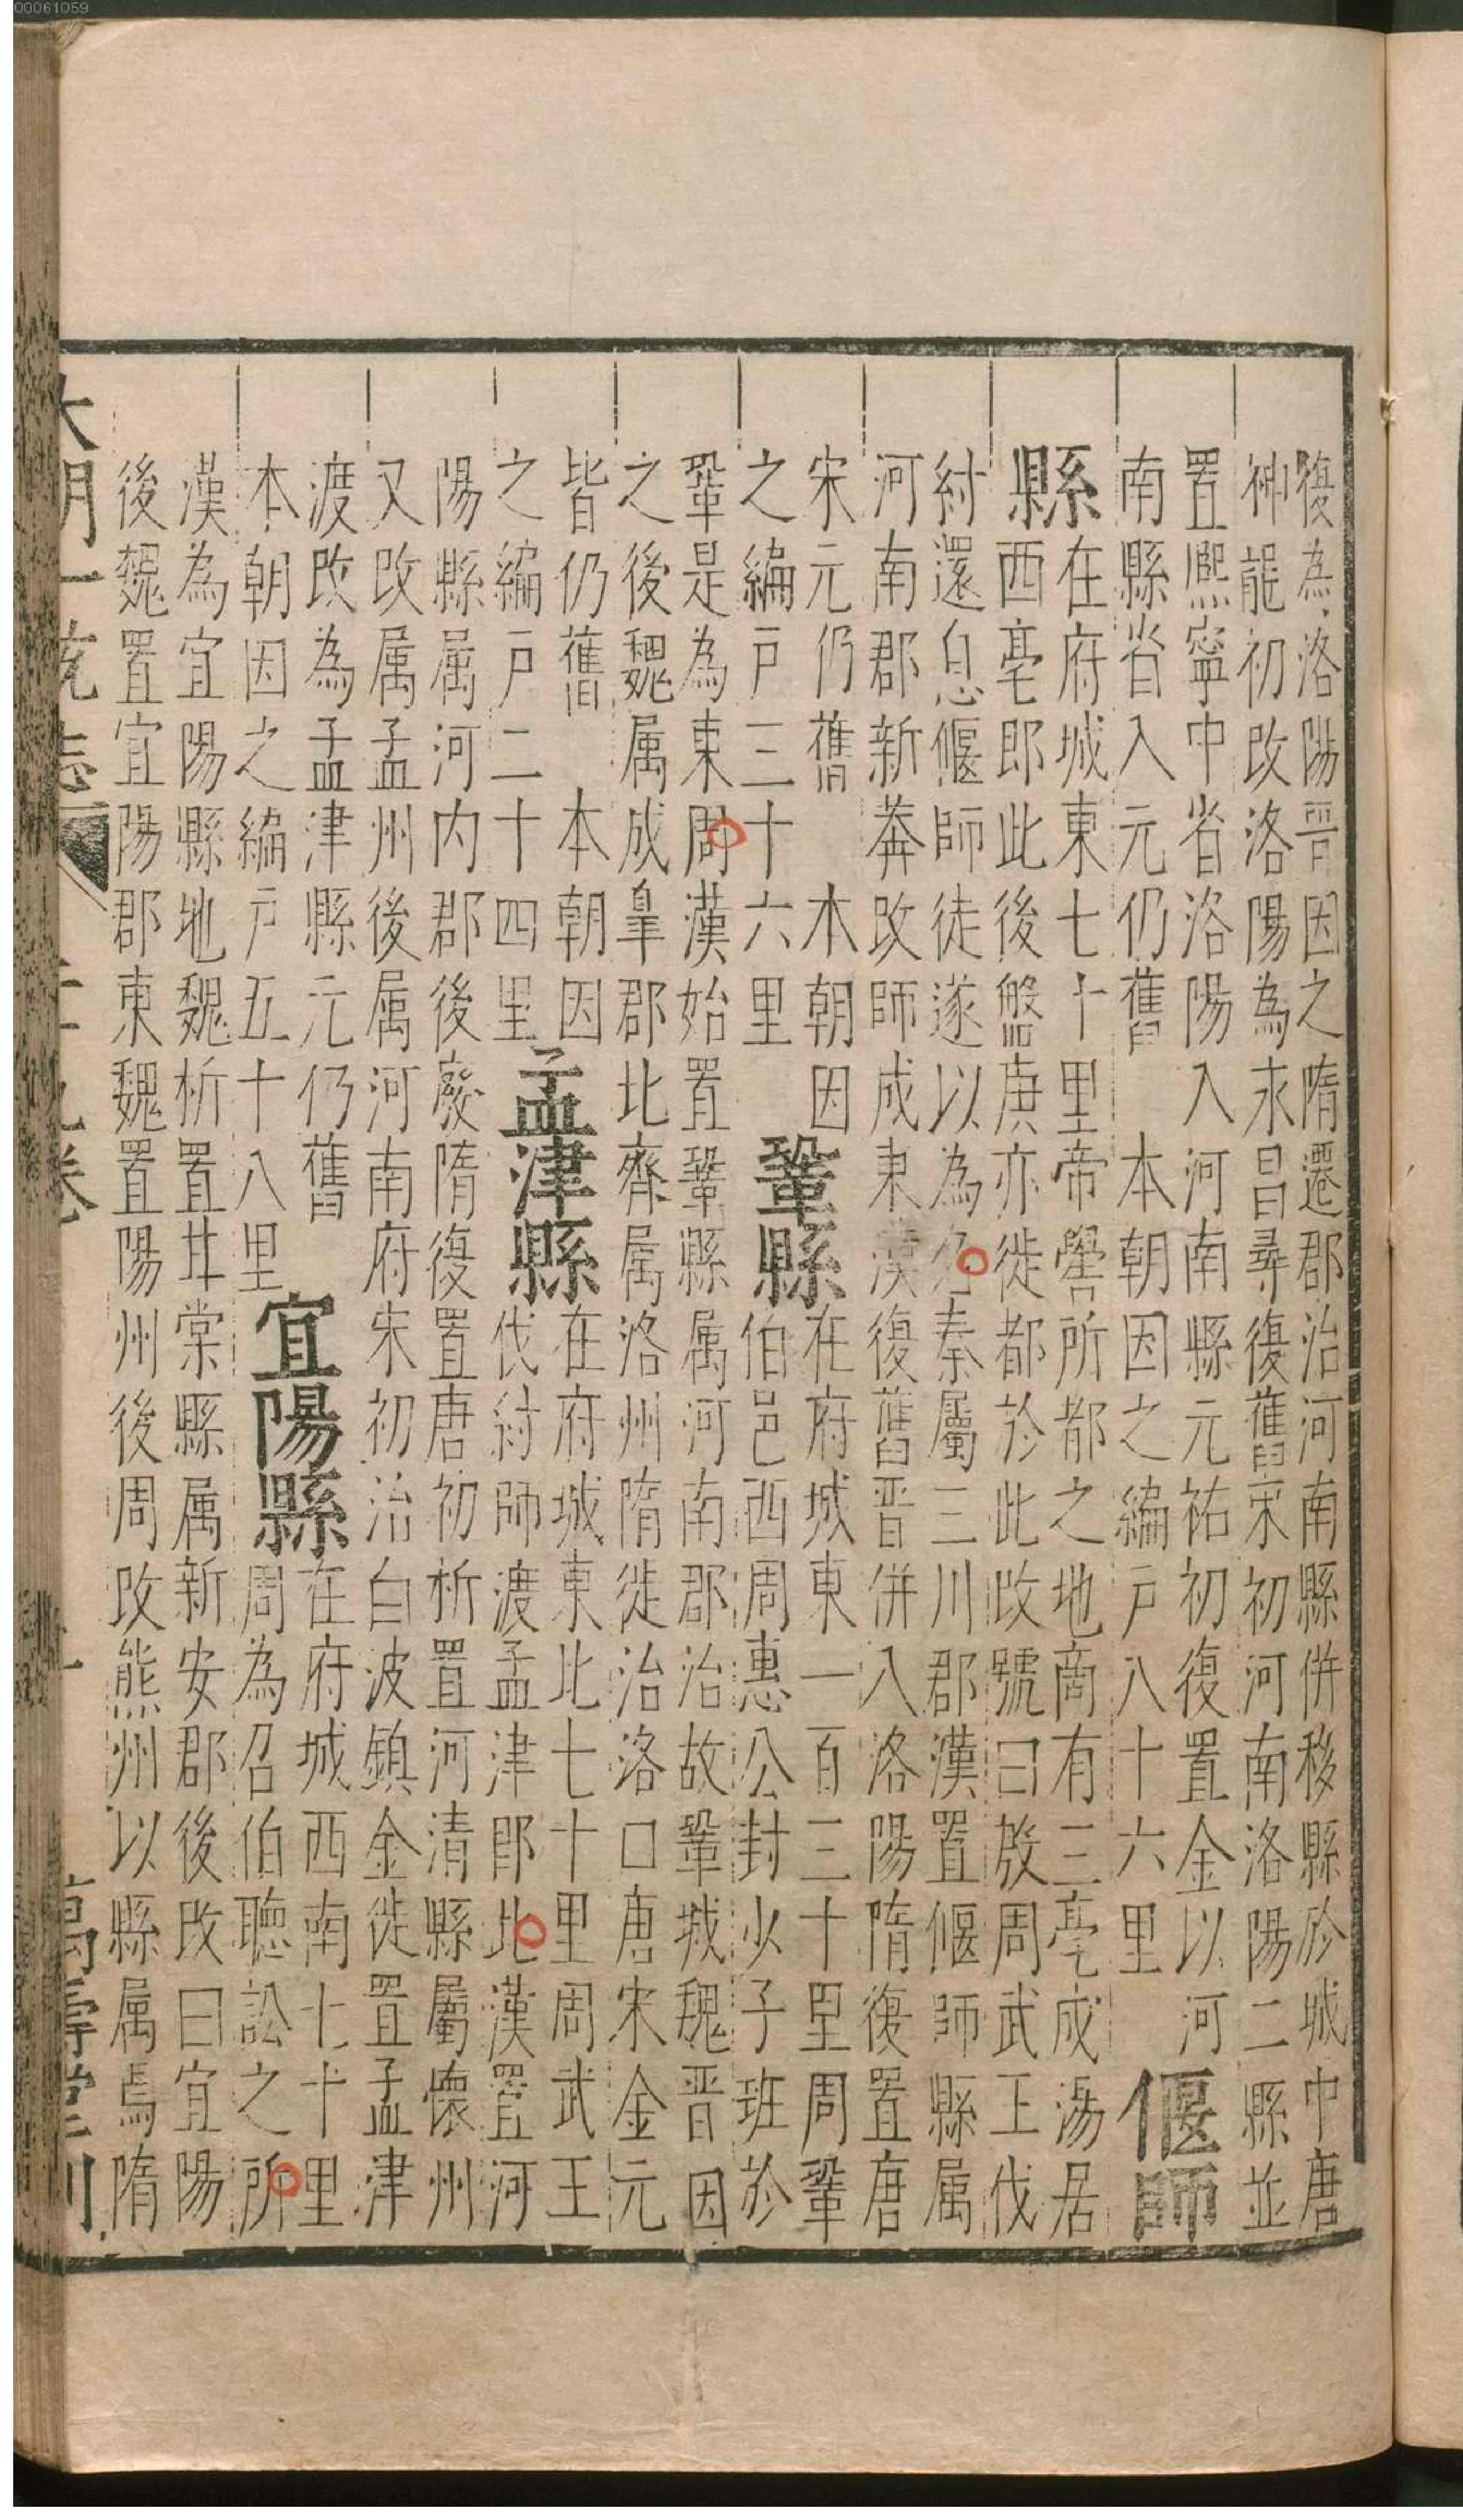 00061059
復為洛陽晉因之隋遷郡治河南縣併移縣於城中唐
神龍初改洛陽為永昌尋復舊宋初河南洛陽二縣並
置熈寧中省洛陽入河南縣元祐初復置金以河
南縣省入元仍舊 本朝因之編戸八十六里 偃師
縣
在府城東七十里帝嚳所都之地商有三亳成湯居
西亳即此後盤庚亦徙都於此改號曰殷周武王伐
紂還息偃師徒遂以為名秦屬三川郡漢置偃師縣属
河南郡新莾改師成東漢復舊晉併入洛陽隋復置唐
宋元仍舊 本朝因
之編戸三十六里 鞏縣
在府城東一百三十里周鞏
伯邑西周惠公封少子班於
鞏是為東周漢始置鞏縣属河南郡治故鞏城魏晉因
之後魏属成皐郡北齊属洛州隋徙治洛口唐宋金元
皆仍舊 本朝因
之編戸二十四里 孟津縣
在府城東北七十里周武王
伐紂師渡孟津即此漢置河
陽縣属河内郡後廢隋復置唐初析置河清縣屬懷州
又改属孟州後属河南府宋初治白波鎮金徙置孟津
渡改為孟津縣元仍舊
本朝因之編戸五十八里 宜陽縣
在府城西南七十里
周為召伯聽訟之所
漢為宜陽縣地魏析置甘棠縣属新安郡後改曰宜陽
後魏置宜陽郡東魏置陽州後周改熊州以縣属焉隋
大明一統志 二十九卷 萬壽堂刊